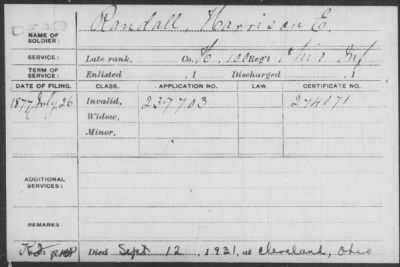 DEAD
NAME OF SOLDIER: Randall, Harrison E.
SERVICE: Late rank, Co. H, 100 Reg't Ohio Inf
TERM OF SERVICE: Enlisted , 1 Discharged , 1
DATE OF FILING. CLASS. APPLICATION NO. LAW. CERTIFICATE NO.
1877 July 26 Invalid, 237703 274071
Widow,
Minor,
ADDITIONAL SERVICES:
REMARKS:
Died Sept 12, 1921, at Cleveland, Ohio